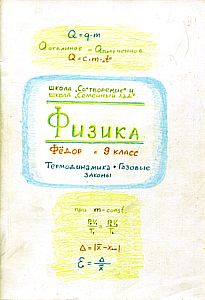 Q = q·m
Qотданное = Qполученное
Q = c·m·Δt°
школа „Сотворение" и
школа „Семейный лад"
Физика
Фёдор 9 класс
Термодинамика • Газовые
законы
при m = const:
P₁V₁/T₁ = P₂V₂/T₂
ε = Δ/x